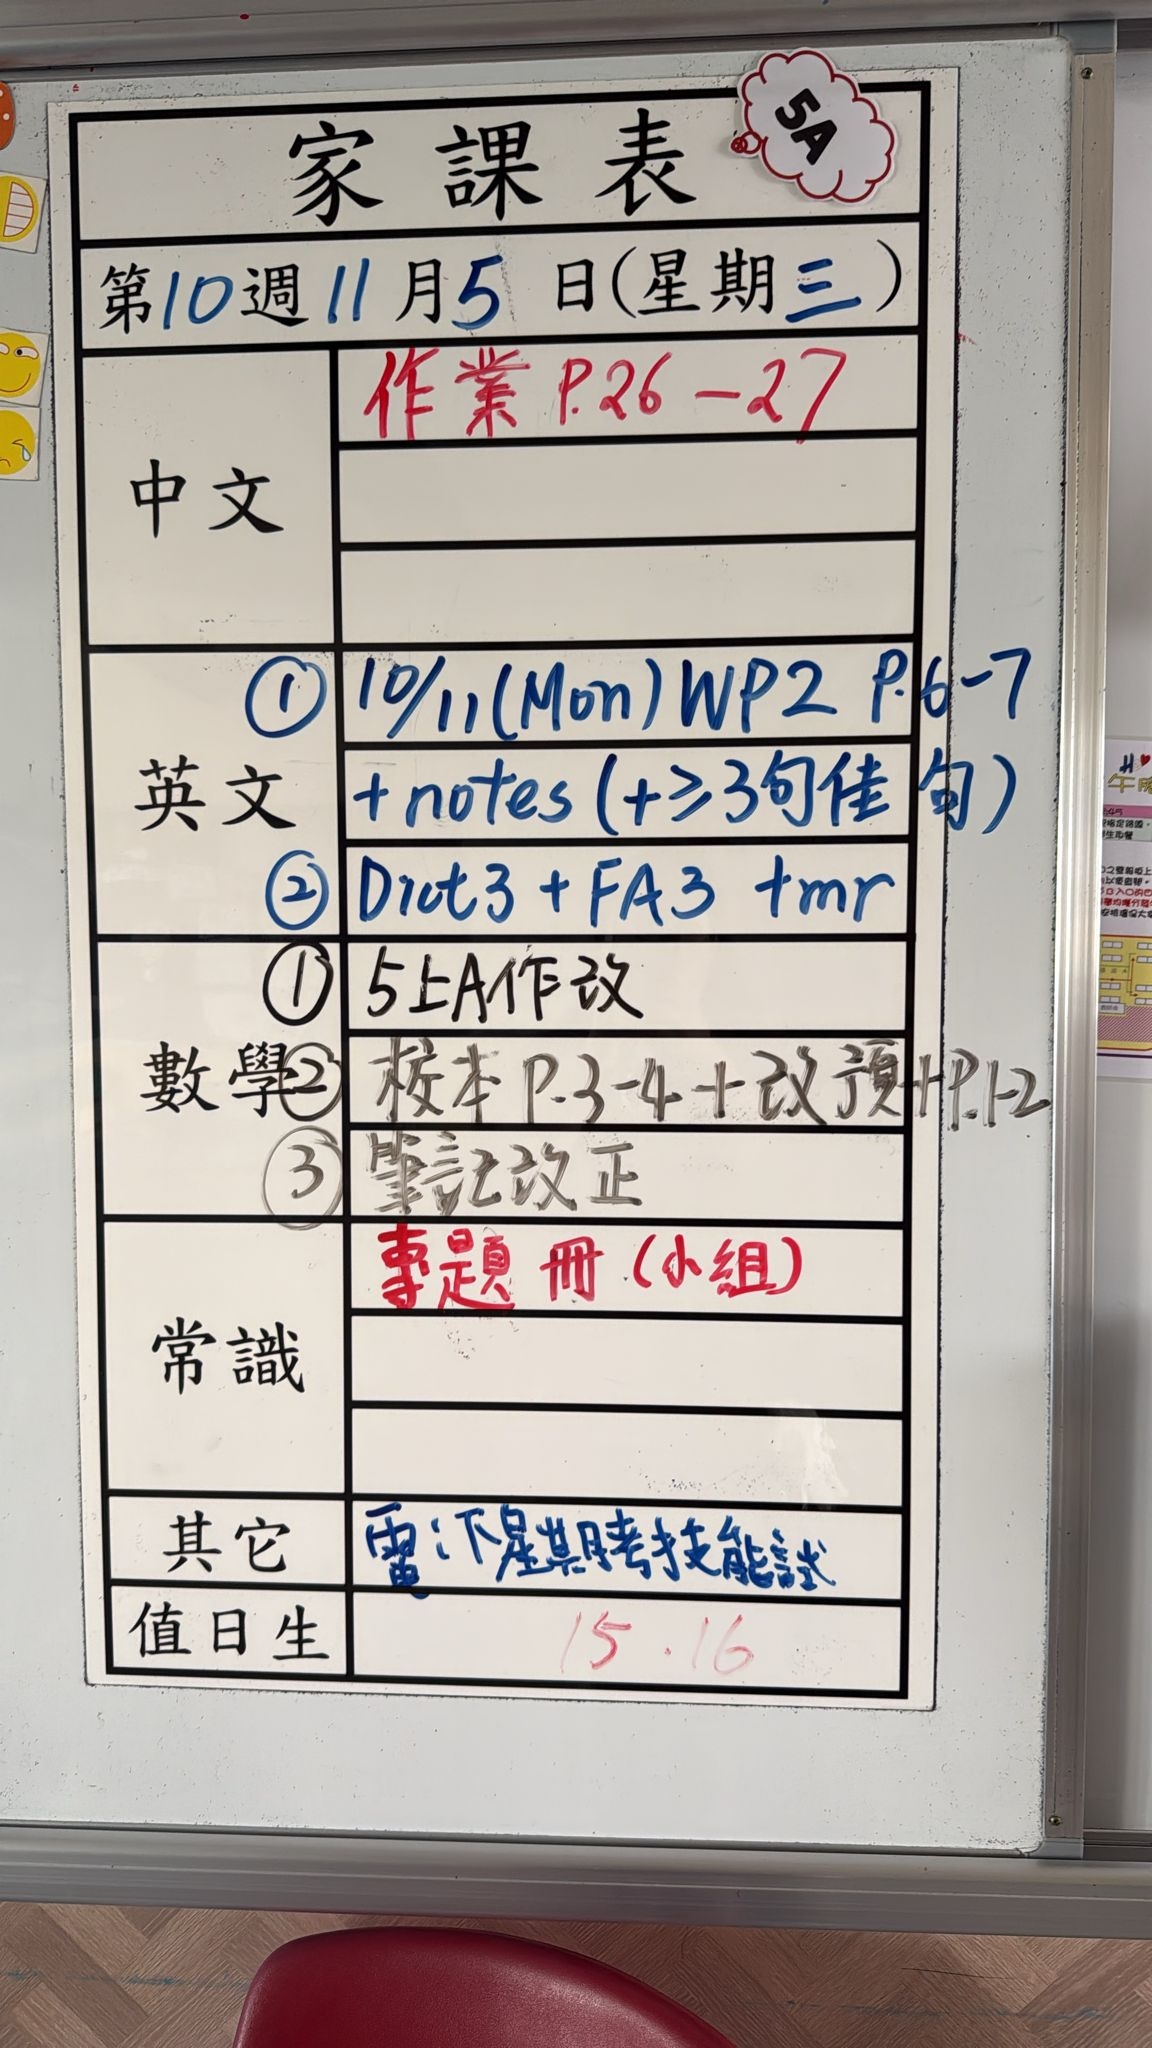 5A
家課表
第10週11月5日(星期三)
中文
作業 P.26-27
英文
① 10/11(Mon) WP2 P.6-7
+ notes (+≥3句佳句)
② Dict3 + FA3 +mr
數學
① 5上A作改
② 校本P.3-4+改預+P.1-2
③ 筆記改正
常識
專題冊(小組)
其它
電:下星期考技能試
值日生
15.16